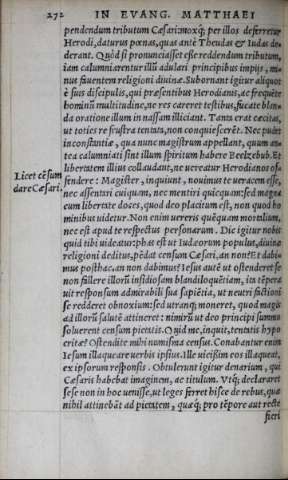 272 IN EVANG. MATTHAEI
pendendum tributum Cæsari: moxq; per illos deferretur
Herodi, daturus pœnas, quas ante Theudas & Iudas de-
derant. Quòd si pronunciasset esse reddendum tributum,
iam calumniarentur illū adulari principibus impijs, mi-
nus fauentem religioni diuinæ. Subornant igitur aliquot
è suis discipulis, qui præsentibus Herodianis, ac frequēte
hominū multitudine, ne res careret testibus, fucate blan-
da oratione illum in nassam illiciant. Tanta erat cæcitas,
ut toties re frustra tentata, non conquiescerēt. Nec pudet
inconstantiæ, qua nunc magistrum appellant, quum an-
tea calumniati sint illum spiritum habere Beelzebub. Et
libertatem illius collaudant, ne uereatur Herodianos of-
fendere: Magister, inquiunt, nouimus te ueracem esse,
Licet cēsum
nec assentari cuiquam, nec mentiri quicquam: sed magna
dare Cæsari.
cum libertate doces, quod deo placitum est, non quod ho
minibus uidetur. Non enim uereris quēquam mortalium,
nec est apud te respectus personarum. Dic igitur nobis
quid tibi uideatur: phas est ut Iudæorum populus, diuinæ
religioni deditus, pēdat censum Cæsari, an non? Et dabi-
mus posthac, an non dabimus? Iesus autē ut ostenderet se
non fallere illorū insidiosam blandiloquētiam, ita tēpera
uit responsum admirabili sua sapiētia, ut neutri factioni
se redderet obnoxium: sed utranq; moneret, quod magis
ad illorū salutē attineret: nimirū ut deo principi summo
soluerent censum pietatis. Quid me, inquit, tentatis hypo
critæ? Ostendite mihi numisma census. Conabantur enim
Iesum illaqueare uerbis ipsius. Ille uicissim eos illaqueat,
ex ipsorum responsis. Obtulerunt igitur denarium, qui
Cæsaris habebat imaginem, ac titulum. Vtq; declararet
sese non in hoc uenisse, ut leges ferret hisce de rebus, quæ
nihil attinebāt ad pietatem, quæq; pro tēpore aut recte
fieri